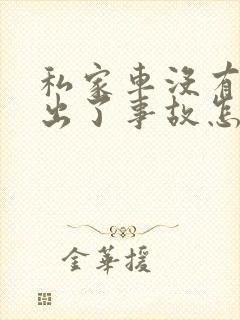 私家车没有
出了事故怎
金華援